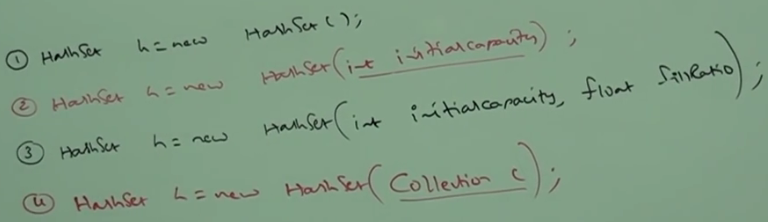 ① HashSet h = new HashSet();
② HashSet h = new HashSet(int initialcapacity);
③ HashSet h = new HashSet(int initialcapacity, float fillRatio);
④ HashSet h = new HashSet(Collection c);